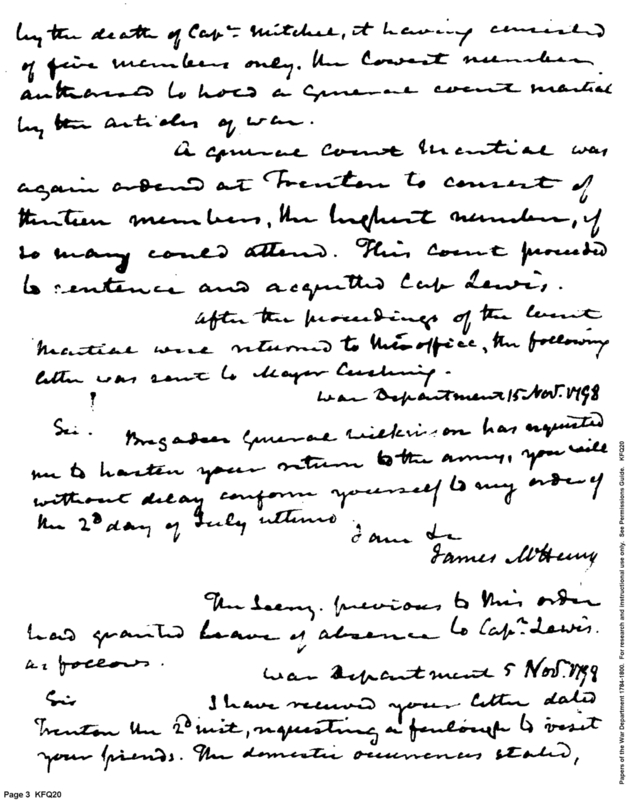 by the death of Cap.n Mitchel, it having consisted
of five members only, the lowest number
authorised to hold a general court martial
by the articles of war.
A general Court Martial was
again ordered at Trenton to consist of
thirteen members, the highest number, if
so many could attend. This court proceeded
to sentence and acquitted Cap Lewis.
After the proceedings of the Court
Martial were returned to this office, the following
letter was sent to Major Cushing.
War Department 15 Nov. 1798
Sir.
Brigadeer General Wilkinson has requested
me to hasten your return to the army, you will
without delay conform yourself to my order of
the 2d day of July ultimo
I am &c
James McHenry
The Secry. previous to this order
had granted leave of absence to Cap.n Lewis.
as follows.
War Department 5 Nov. 1798
Sir
I have received your letter dated
Trenton the 2d inst, requesting a furlough to visit
your friends. The domestic occurrences stated,
Page 3 KFQ20
Papers of the War Department 1784-1800. For research and instructional use only. See Permissions Guide. KFQ20